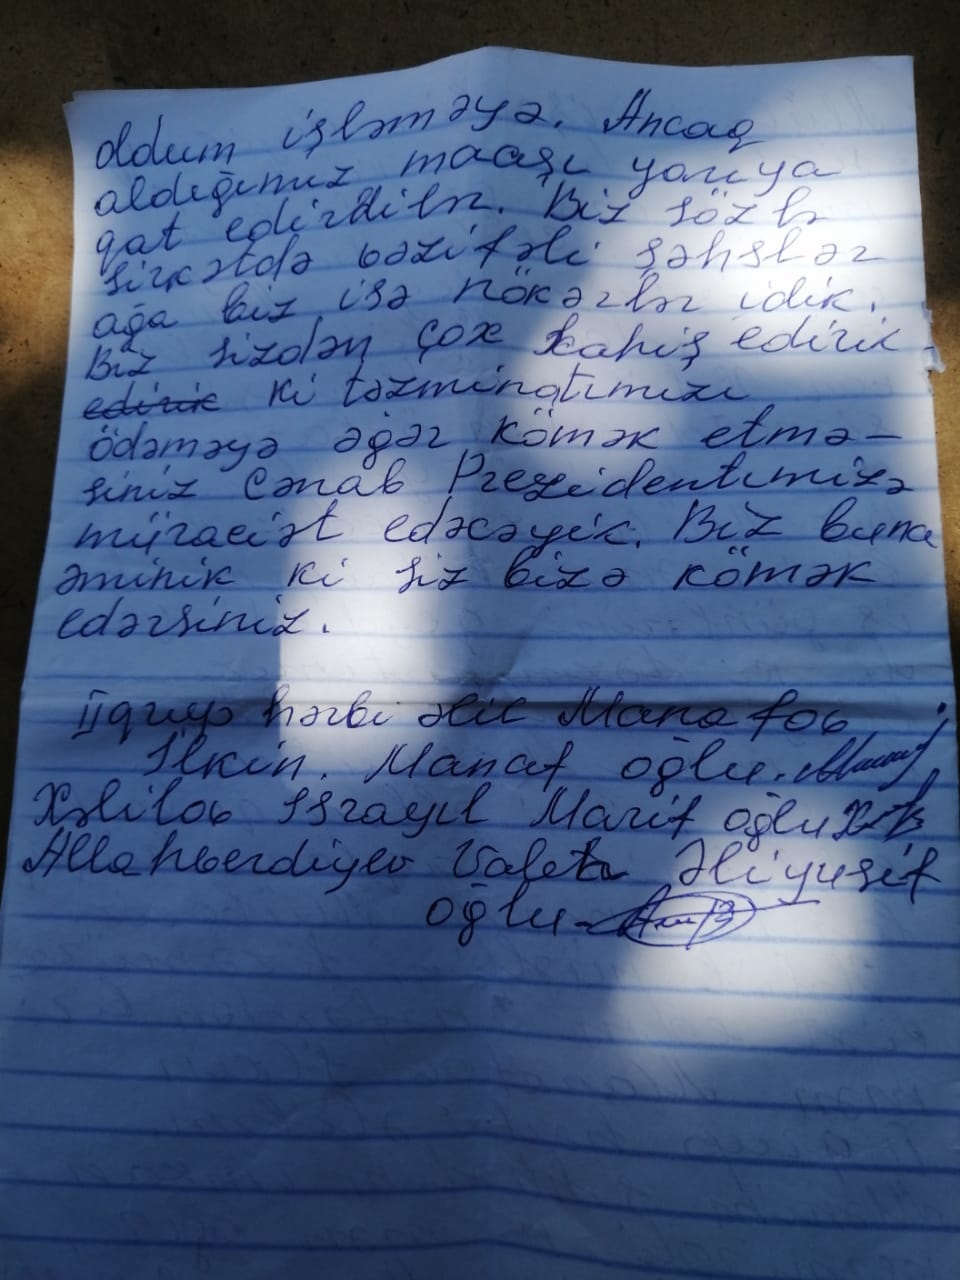 oldum işləməyə. Ancaq
aldığımız maaşı yarıya
qat edirdilər. Biz sözlə
şirkətdə vəzifəli şəhslər
ağa biz isə nökərlər idik.
Biz sizdən çox xahiş edirik
edirik ki təzminatımızı
ödəməyə əgər kömək etmə-
siniz Cənab Prezidentimizə
müraciət edəcəyik. Biz buna
əminik ki siz bizə kömək
edərsiniz.
II qrup hərbi əlil Manafov
İlkin. Manaf oğlu.
Xəlilov İsrayıl Marif oğlu
Allahverdiyev Əliyusif
oğlu